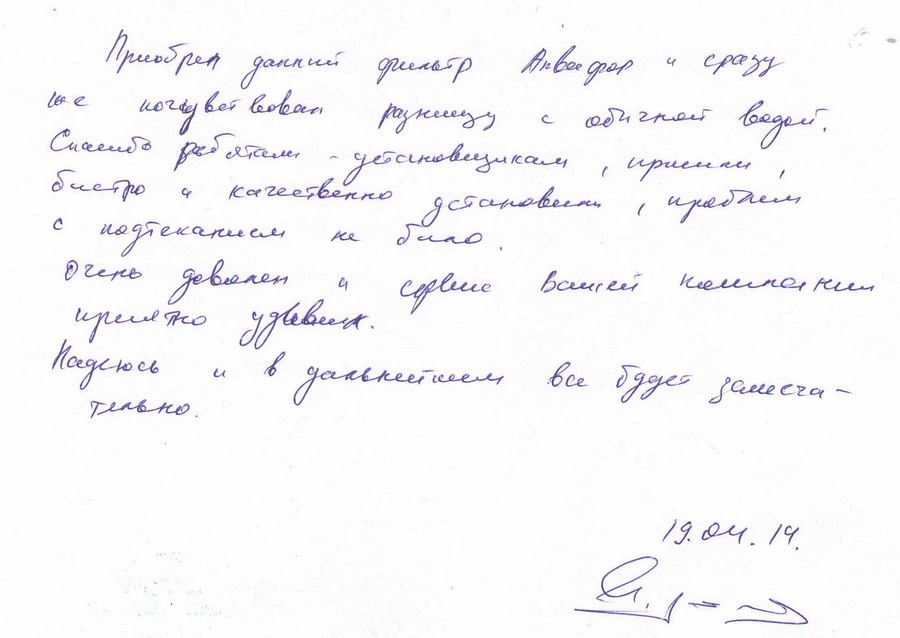 Приобрел данный фильтр Аквафор и сразу
же почувствовал разницу с обычной водой.
Спасибо ребятам - установщикам, пришли,
быстро и качественно установили, проблем
с подтеканием не было.
Очень доволен и сервис Вашей компании
приятно удивил.
Надеюсь и в дальнейшем все будет замеча-
тельно.
19.04.14.